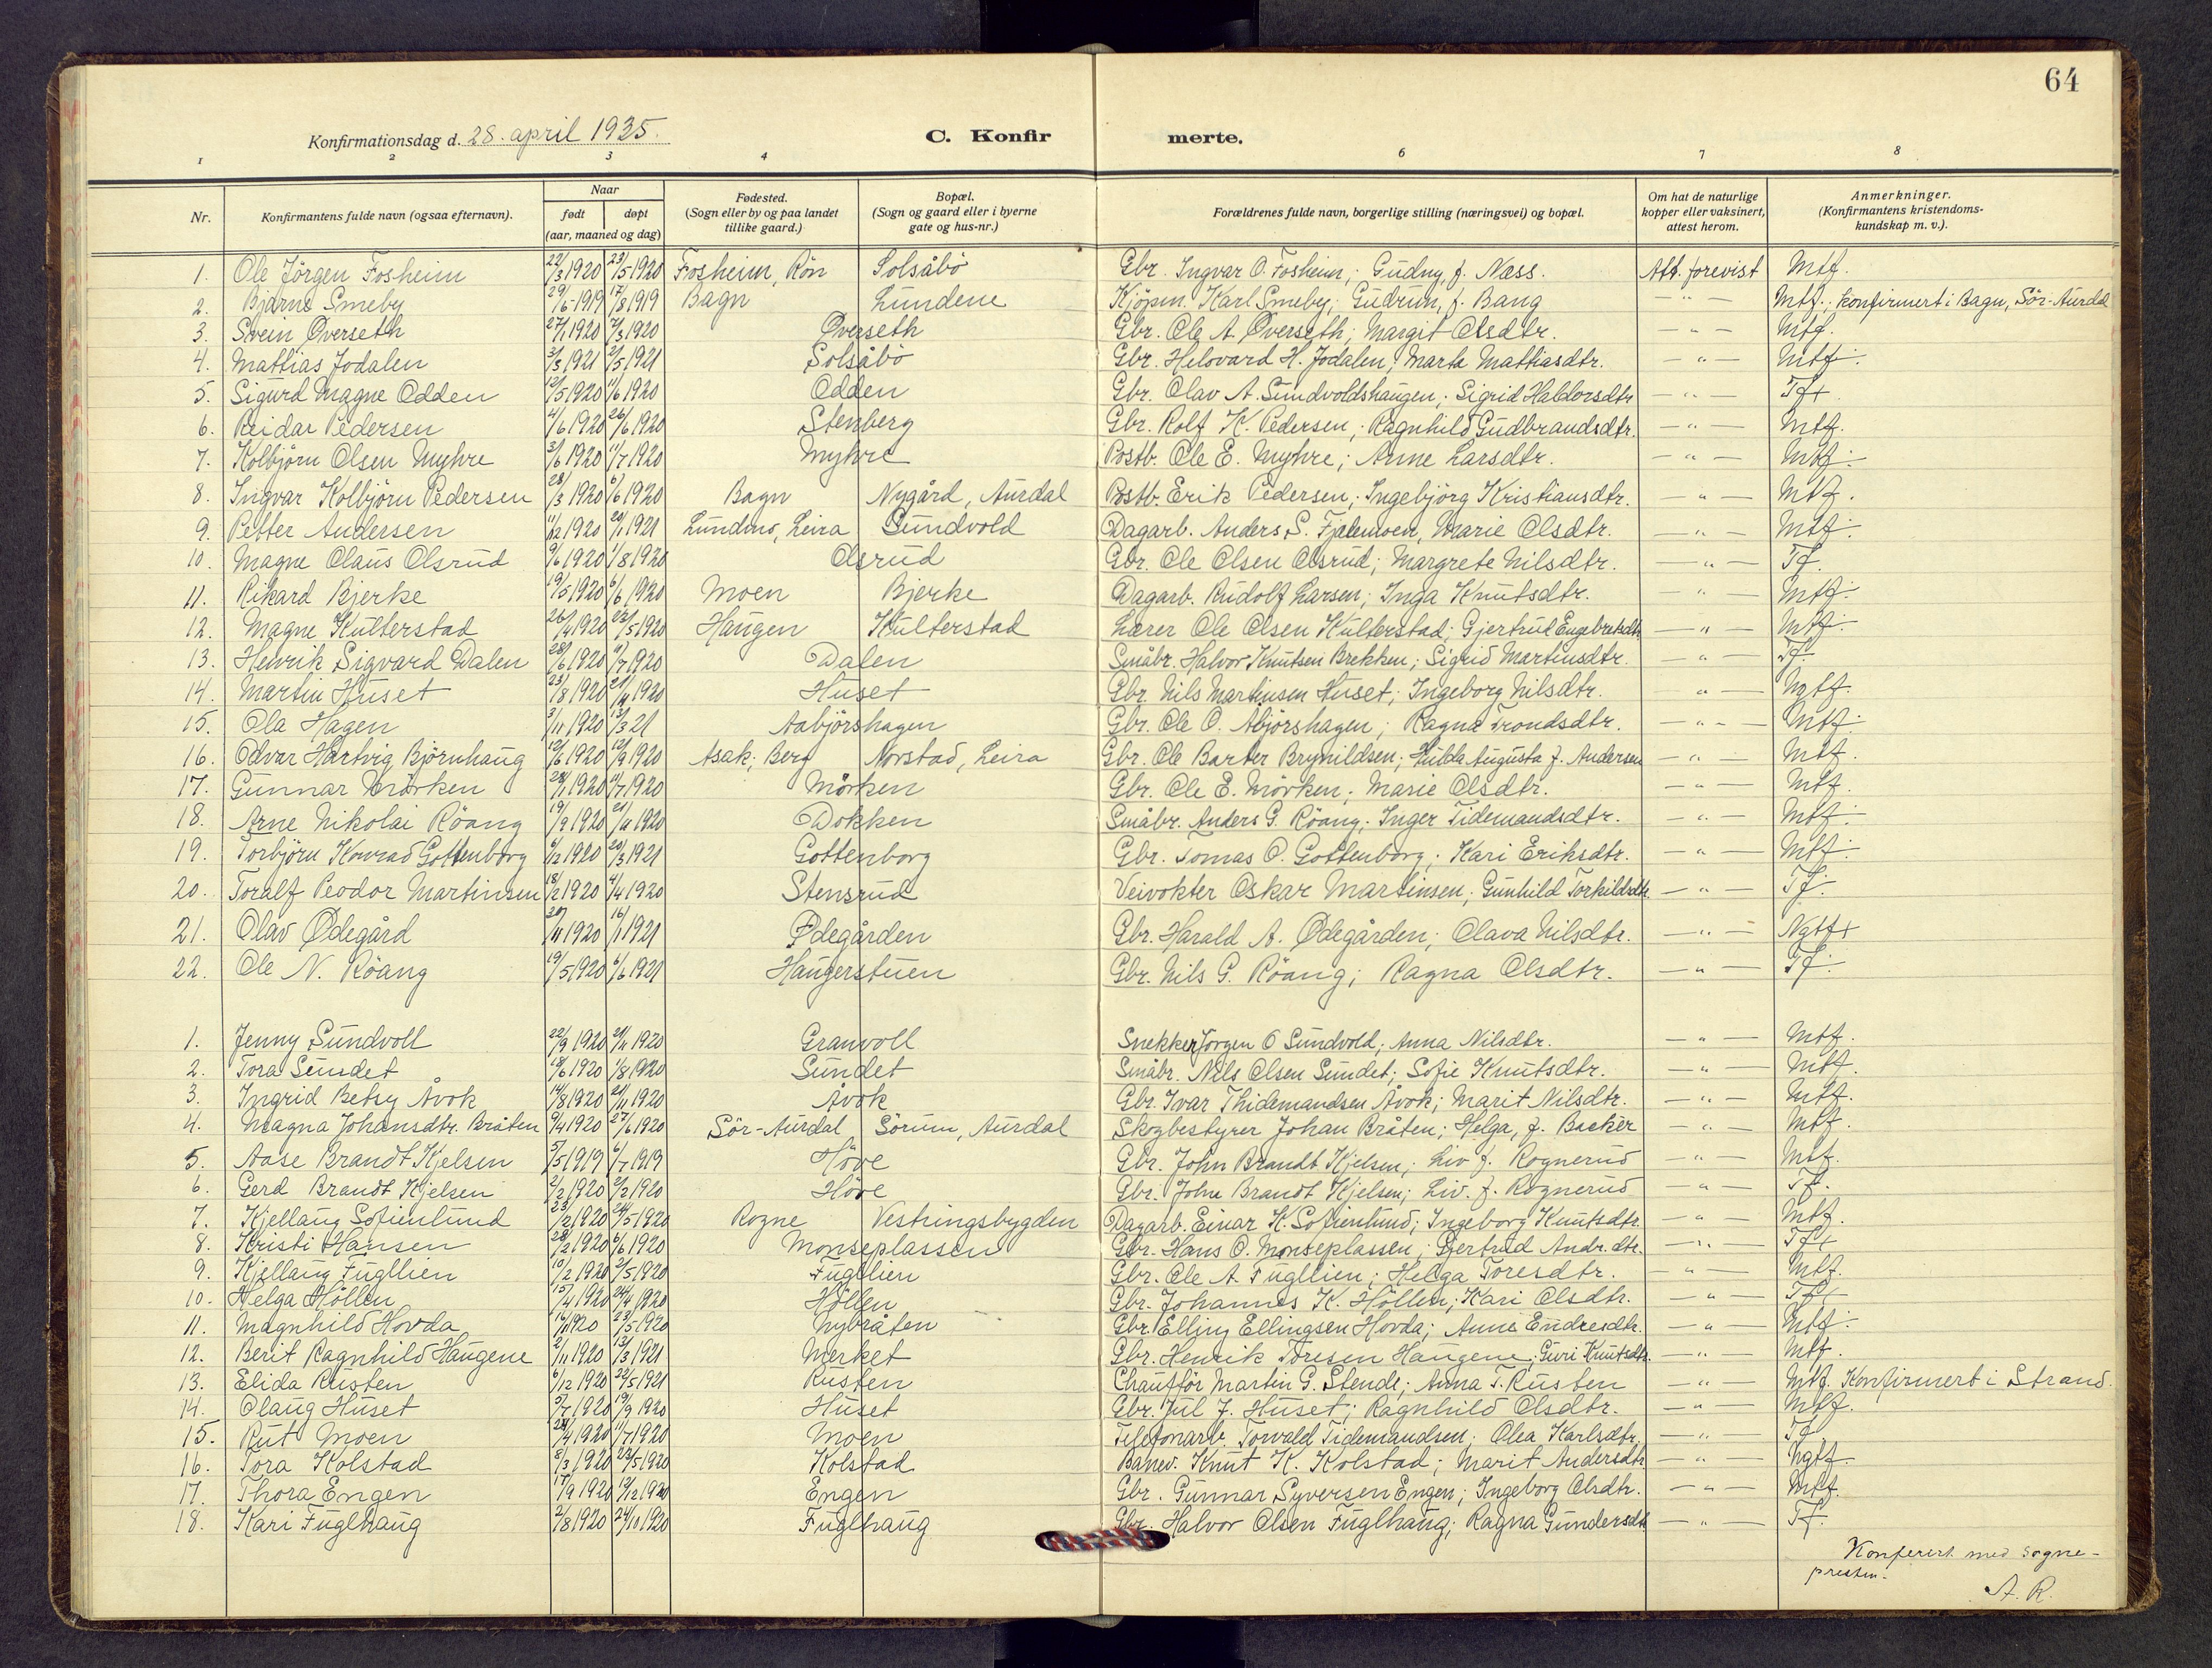 64
Konfirmationsdag d. 28. april 1935.
C. Konfirmerte.
1 2 3 4 6 7 8
Nr. Konfirmantens fulde navn (ogsaa efternavn). Naar født døpt (aar, maaned og dag) Fødested. (Sogn eller by og paa landet tillike gaard.) Bopæl. (Sogn og gaard eller i byerne gate og hus-nr.) Forældrenes fulde navn, borgerlige stilling (næringsvei) og bopæl. Om hat de naturlige kopper eller vaksinert, attest herom. Anmerkninger. (Konfirmantens kristendomskundskap m. v.).
1. Ole Jörgen Fosheim 22/3 1920 23/5 1920 Fosheim, Rön Solsåbö Gbr. Ingvar O. Fosheim; Gudny, f. Næss. Att. forevist Mtf.
2. Bjarne Smeby 29/5 1919 17/8 1919 Bagn Lundene Kjöpm. Karl Smeby; Gudrun, f. Bang — " — Mtf. konfirmert i Bagn, Sör-Aurdal
3. Svein Øverseth 27/1 1920 7/3 1920 Øverseth Gbr. Ole A. Øverseth; Margit Olsdtr. — " — Mtf.
4. Mattias Jodalen 3/3 1921 2/5 1921 Solsåbö Gbr. Helovard H. Jodalen; Marta Mattiasdtr. — " — Mtf.
5. Sigurd Magne Odden 12/5 1920 11/6 1920 Odden Gbr. Olav A. Sundvoldshaugen; Sigrid Haldorsdtr — " — Tf+
6. Reidar Pedersen 4/6 1920 26/6 1920 Stenberg Gbr. Rolf K. Pedersen; Ragnhild Gudbrandsdtr. — " — Mtf.
7. Kolbjörn Olsen Myhre 3/6 1920 11/7 1920 Myhre Postb. Ole E. Myhre; Anne Larsdtr. — " — Mtf.
8. Ingvar Kolbjörn Pedersen 28/3 1920 6/6 1920 Bagn Nygård, Aurdal Postb. Erik Pedersen; Ingebjörg Kristiansdtr. — " — Mtf.
9. Petter Andersen 11/12 1920 20/1 1921 Leira Sundvold Dagarb. Anders S. Fjelemoen, Marie Olsdtr. — " — Mtf.
10. Magne Claus Olsrud 9/6 1920 1/8 1920 Olsrud Gbr. Ole Olsen Olsrud; Margrete Nilsdtr. — " — Tf.
11. Rikard Bjerke 19/5 1920 6/6 1920 Moen Bjerke Dagarb. Rudolf Larsen; Inga Knutsdtr. — " — Mtf.
12. Magne Kulterstad 26/4 1920 22/5 1920 Haugen Kulterstad Lærer Ole Olsen Kulterstad; Gjertrud Engebretsdtr — " — Mtf.
13. Henrik Sigvard Dalen 28/6 1920 11/7 1920 Dalen Småbr. Halvor Knutsen Brekken; Sigrid Martinsdtr. — " — Tf.
14. Martin Huset 23/8 1920 21/11 1920 Huset Gbr. Nils Martinsen Huset; Ingeborg Nilsdtr. — " — Mtf.
15. Ola Hagen 3/11 1920 13/3 21 Aabjörshagen Gbr. Ole O. Abjörshagen; Ragna Trondsdtr. — " — Mtf.
16. Odvar Hartvig Björnhaug 12/6 1920 12/9 1920 Asak; Berg Norstad, Leira Gbr. Ole Barter Brynildsen; Hulda Augusta f. Andersen — " — Mtf.
17. Gunnar Mörken 28/1 1920 11/7 1920 Mörken Gbr. Ole E. Mörken; Marie Olsdtr. — " — Mtf.
18. Arne Nikolai Röang 19/9 1920 21/11 1920 Dokken Småbr. Anders G. Röang; Inger Tidemandsdtr. — " — Mtf.
19. Torbjörn Konrad Gottenborg 6/12 1920 20/3 1921 Gottenborg Gbr. Tomas O. Gottenborg; Kari Eriksdtr. — " — Mtf.
20. Toralf Peodor Martinsen 18/2 1920 4/4 1920 Stensrud Veivokter Oskar Martinsen; Gunhild Torkildsdtr. — " — Tf.
21. Olav Ødegård 30/11 1920 16/1 1921 Ødegården Gbr. Harald A. Ødegården; Olava Nilsdtr. — " — Ngtf+
22. Ole N. Röang 19/5 1920 6/6 1921 Haugerstuen Gbr. Nils G. Röang; Ragna Olsdtr. — " — Tf.
1. Jenny Sundvoll 22/9 1920 21/11 1920 Granvoll Snekker Jörgen O Sundvold; Anna Nilsdtr. — " — Mtf.
2. Tora Sundet 18/6 1920 1/8 1920 Sundet Småbr. Nils Olsen Sundet; Sofie Knutsdtr. — " — Mtf.
3. Ingrid Betsy Åvok 14/8 1920 21/11 1920 Åvok Gbr. Ivar Thidemandsen Åvok; Marit Nilsdtr. — " — Mtf.
4. Magna Johansdtr. Bråten 9/4 1920 27/6 1920 Sör-Aurdal Sörum, Aurdal Skogbestyrer Johan Bråten; Helga, f. Backer — " — Mtf.
5. Aase Brandt Kjelsen 5/5 1919 6/7 1919 Höve Gbr. John Brandt Kjelsen; Liv f. Rognerud — " — Mtf.
6. Gerd Brandt Kjelsen 2/2 1920 2/2 1920 Höve Gbr. John Brandt Kjelsen; Liv. f. Rognerud — " — Tf.
7. Kjellaug Sofienlund 23/2 1920 24/5 1920 Rogne Vestringsbygden Dagarb. Einar K. Sofienlund; Ingeborg Knutsdtr. — " — Mtf.
8. Kristi Hansen 28/2 1920 6/6 1920 Monseplassen Gbr. Hans O. Monseplassen; Gjertrud Andr. dtr. — " — Tf+
9. Kjellaug Fugllien 10/2 1920 2/5 1920 Fugllien Gbr. Ole A. Fugllien; Helga Toresdtr. — " — Mtf.
10. Helga Höllen 15/4 1920 24/4 1920 Höllen Gbr. Johannes K. Höllen; Kari Olsdtr. — " — Tf+
11. Magnhild Hovda 1920 23/5 1920 Nybråten Gbr. Elling Ellingsen Hovda; Anne Endresdtr. — " — Mtf.
12. Berit Ragnhild Haugene 2/11 1920 13/3 1921 Merket Gbr. Henrik Toresen Haugene; Guri Knutsdtr. — " — Mtf.
13. Elida Rusten 6/12 1920 22/5 1921 Rusten Chaufför Martin G. Stende; Anna T. Rusten — " — Mtf. Konfirmert i Strand.
14. Olaug Huset 5/7 1920 19/9 1920 Huset Gbr. Jul J. Huset; Ragnhild Olsdtr. — " — Mtf.
15. Rut Moen 28/4 1920 11/7 1920 Moen Telefonarb. Torvald Tidemandsen; Olea Karlsdtr. — " — Tf.
16. Tora Kolstad 8/3 1920 23/5 1920 Kolstad Banev. Knut K. Kolstad; Marit Andersdtr — " — Ngtf.
17. Thora Engen 17/9 1920 12/12 1920 Engen Gbr. Gunnar Syversen Engen; Ingeborg Olsdtr. — " — Mtf.
18. Kari Fuglhaug 2/8 1920 24/10 1920 Fuglhaug Gbr. Halvor Olsen Fuglhaug; Ragna Gundersdtr — " — Tf.
Konferert med sogne-
presten.
A. R.